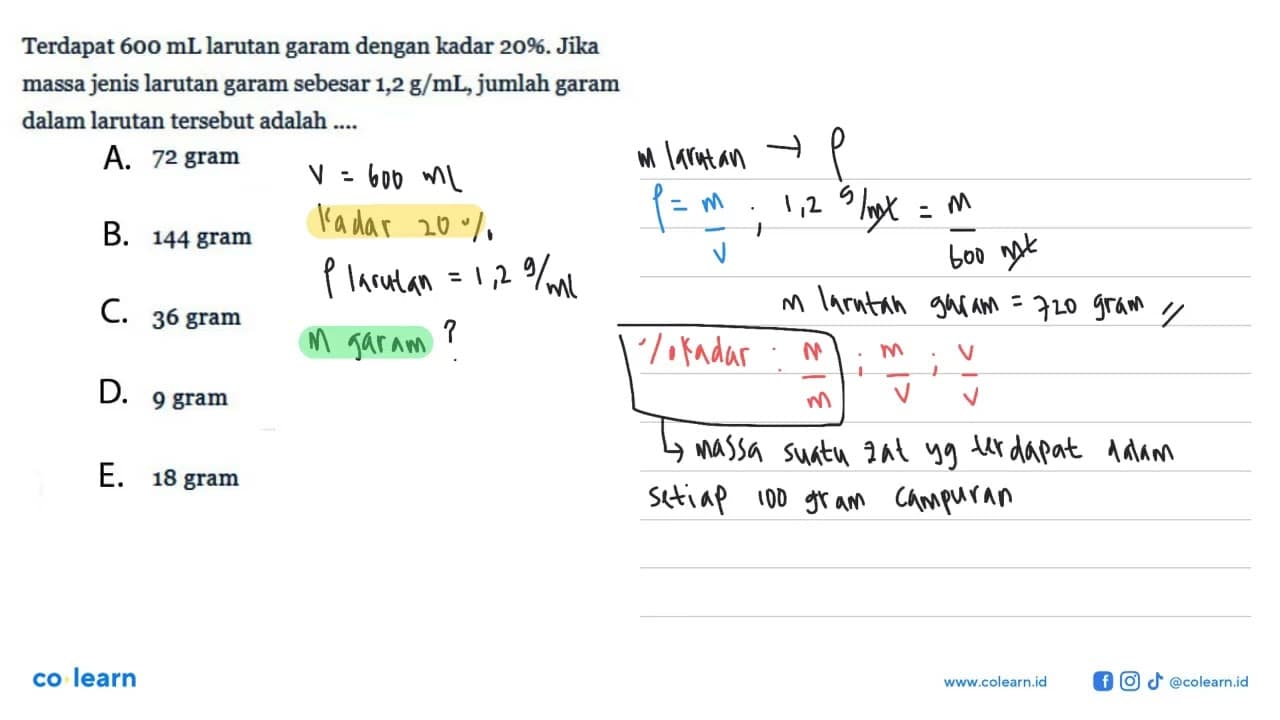 Terdapat 600 mL larutan garam dengan kadar 20%. Jika
massa jenis larutan garam sebesar 1,2 g/mL, jumlah garam
dalam larutan tersebut adalah ....
A. 72 gram
B. 144 gram
C. 36 gram
D. 9 gram
E. 18 gram
V = 600 mL
Kadar 20 %
ρ larutan = 1,2 g/mL
m garam ?
m larutan → ρ
ρ = m/V ; 1,2 g/mL = m/600 mL
m larutan garam = 720 gram //
% kadar : m/m ; m/V ; V/V
↳ massa suatu zat yg terdapat dalam
setiap 100 gram campuran
co learn
www.colearn.id
@colearn.id